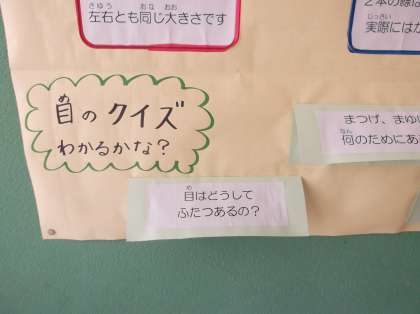 さゆう おな おお
左右とも同じ大きさです
２本の線は
じっさい
実際には
め
目のクイズ
わかるかな？
まつげ、まゆ
なん
何のためにあ
め
目はどうして
ふたつあるの？